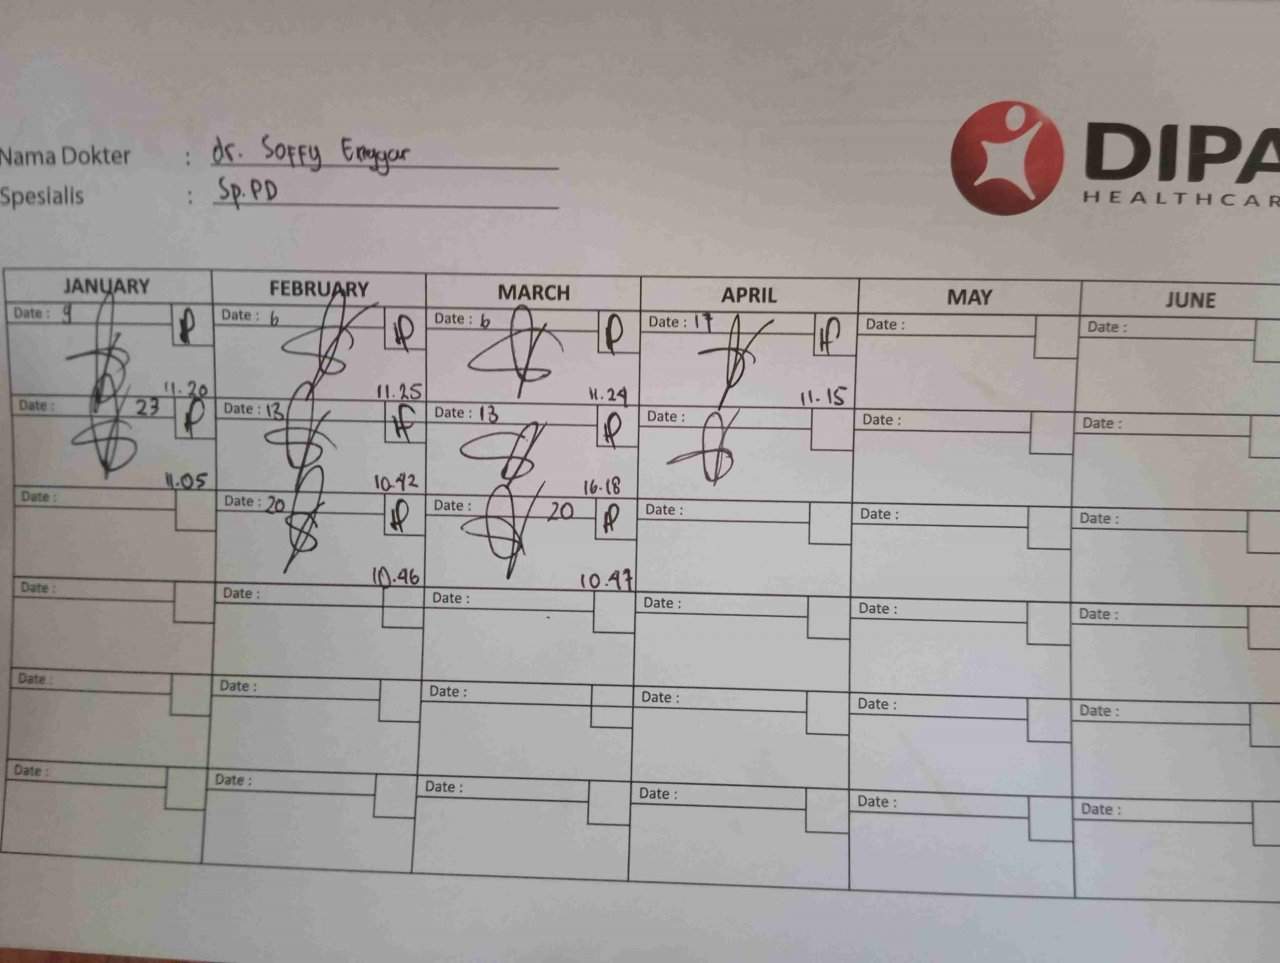 Nama Dokter : dr. Soffy Enggar
Spesialis : Sp.PD
DIPA
HEALTHCAR
JANUARY FEBRUARY MARCH APRIL MAY JUNE
Date : 9 Date : 6 Date : 6 Date : 17 Date : Date :
11.20 11.25 11.24 11.15
Date : 23 Date : 13 Date : 13 Date : Date : Date :
11.05 10.42 16.18
Date : Date : 20 Date : 20 Date : Date : Date :
10.46 10.47
Date : Date : Date : Date : Date : Date :
Date : Date : Date : Date : Date : Date :
Date : Date : Date : Date : Date : Date :